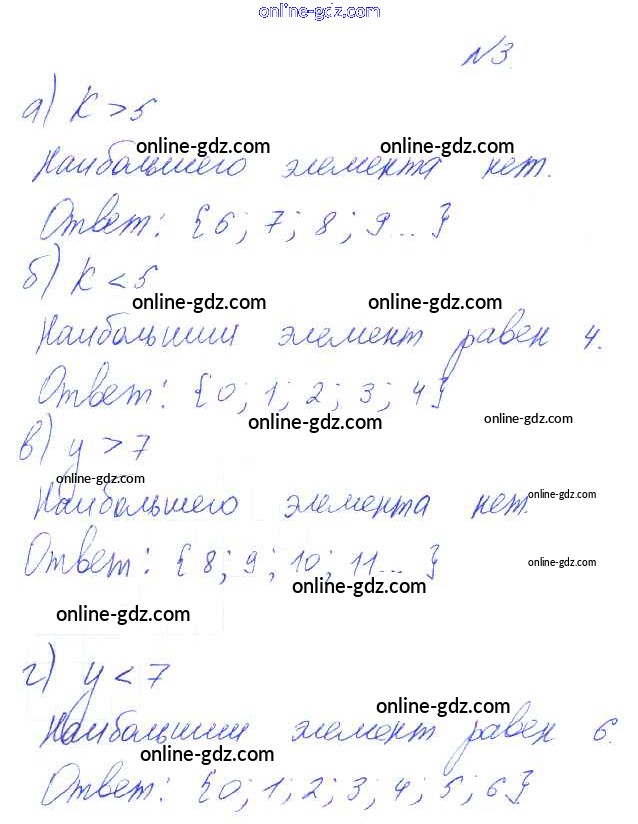 online-gdz.com
№3.
а) К > 5
online-gdz.com online-gdz.com
Наибольшего элемента нет.
Ответ: {6; 7; 8; 9...}
б) К < 5
online-gdz.com online-gdz.com
Наибольший элемент равен 4.
Ответ: {0; 1; 2; 3; 4}
online-gdz.com online-gdz.com
в) у > 7
online-gdz.com online-gdz.com
Наибольшего элемента нет.
Ответ: {8; 9; 10; 11...}
online-gdz.com
online-gdz.com online-gdz.com
г) у < 7
online-gdz.com
Наибольший элемент равен 6.
online-gdz.com online-gdz.com
Ответ: {0; 1; 2; 3; 4; 5; 6}